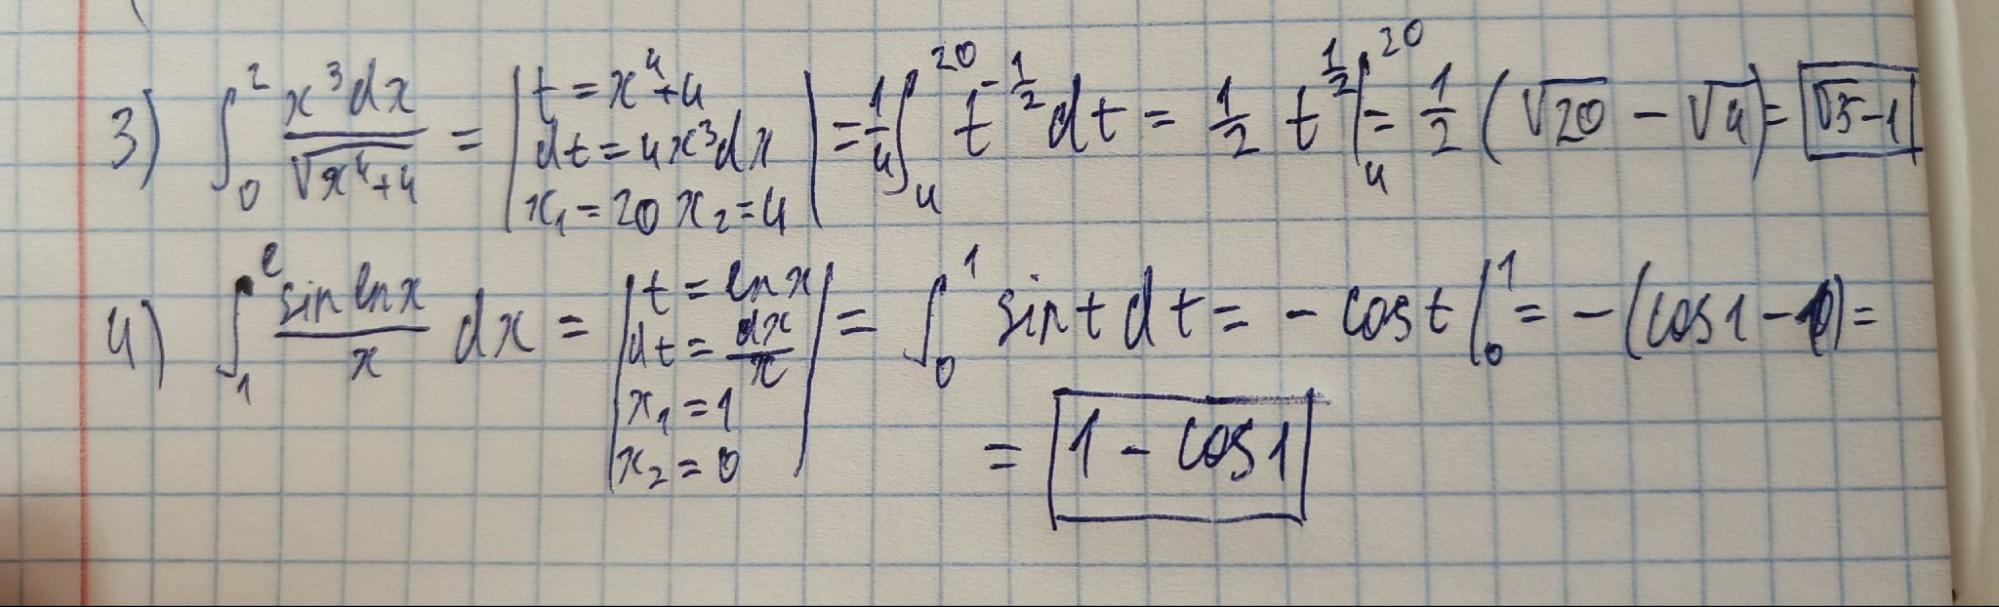 3) ∫₀² x³dx / √(x⁴+4) = | t = x⁴+4; dt = 4x³dx; x₁ = 20 x₂ = 4 | = 1/4 ∫₄²⁰ t^(-1/2) dt = 1/2 t^(1/2) |₄²⁰ = 1/2 (√20 − √4) = √5−1
4) ∫₁ᵉ sin ln x / x dx = | t = ln x; dt = dx/x; x₁ = 1; x₂ = 0 | = ∫₀¹ sin t dt = − cos t |₀¹ = −(cos1−1) =
= 1 − cos1